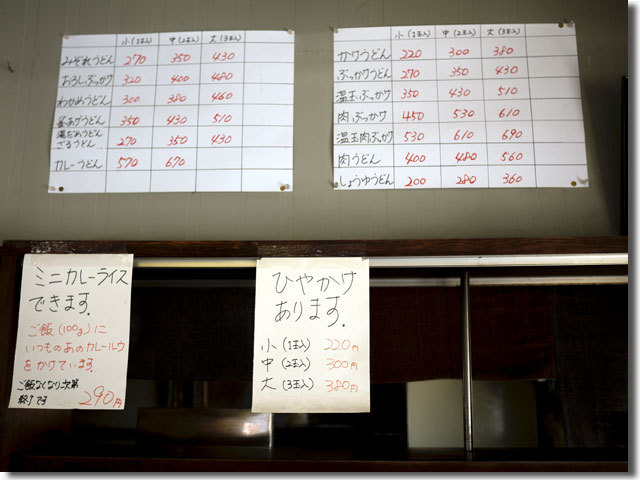 小(1玉入) 中(2玉入) 大(3玉入)
みぞれうどん 270 350 430
おろしぶっかけ 320 400 480
わかめうどん 300 380 460
釜あげうどん 350 430 510
湯だめうどん
ざるうどん 270 350 430
カレーうどん 570 670
小(1玉入) 中(2玉入) 大(3玉入)
かけうどん 220 300 380
ぶっかけうどん 270 350 430
温玉ぶっかけ 350 430 510
肉ぶっかけ 450 530 610
温玉肉ぶっかけ 530 610 690
肉うどん 400 480 560
しょうゆうどん 200 280 360
ミニカレーライス
できます。
ご飯(100g)に
いつものあのカレールウ
をかけています。
ご飯なくなり次第
終了です 290円
ひやかけ
あります。
小(1玉入) 220円
中(2玉入) 300円
大(3玉入) 380円